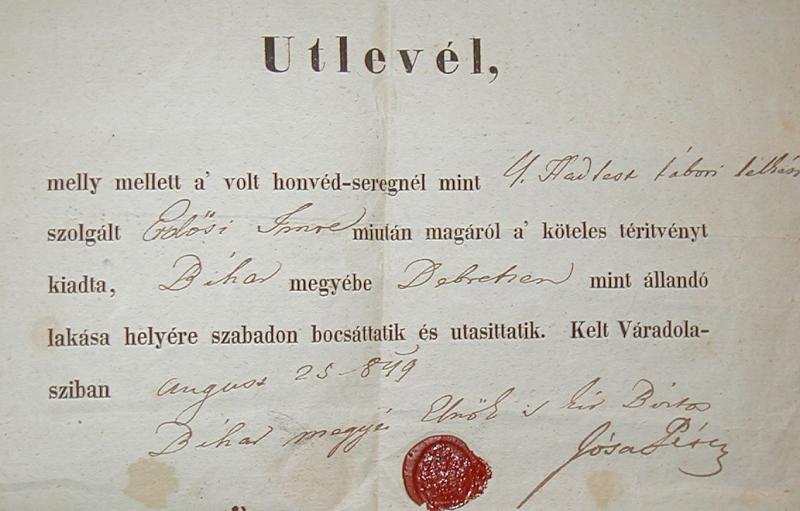 Utlevél,
melly mellett a' volt honvéd-seregnél mint 4. Hadtest tábori lelkész
szolgált Erdősi Imre miután magáról a' köteles téritvényt
kiadta, Bihar megyébe Debretzen mint állandó
lakása helyére szabadon bocsáttatik és utasittatik. Kelt Váradola-
sziban august 25 849
Bihar megyei Elnök is kir Biztos
Jósa Péter